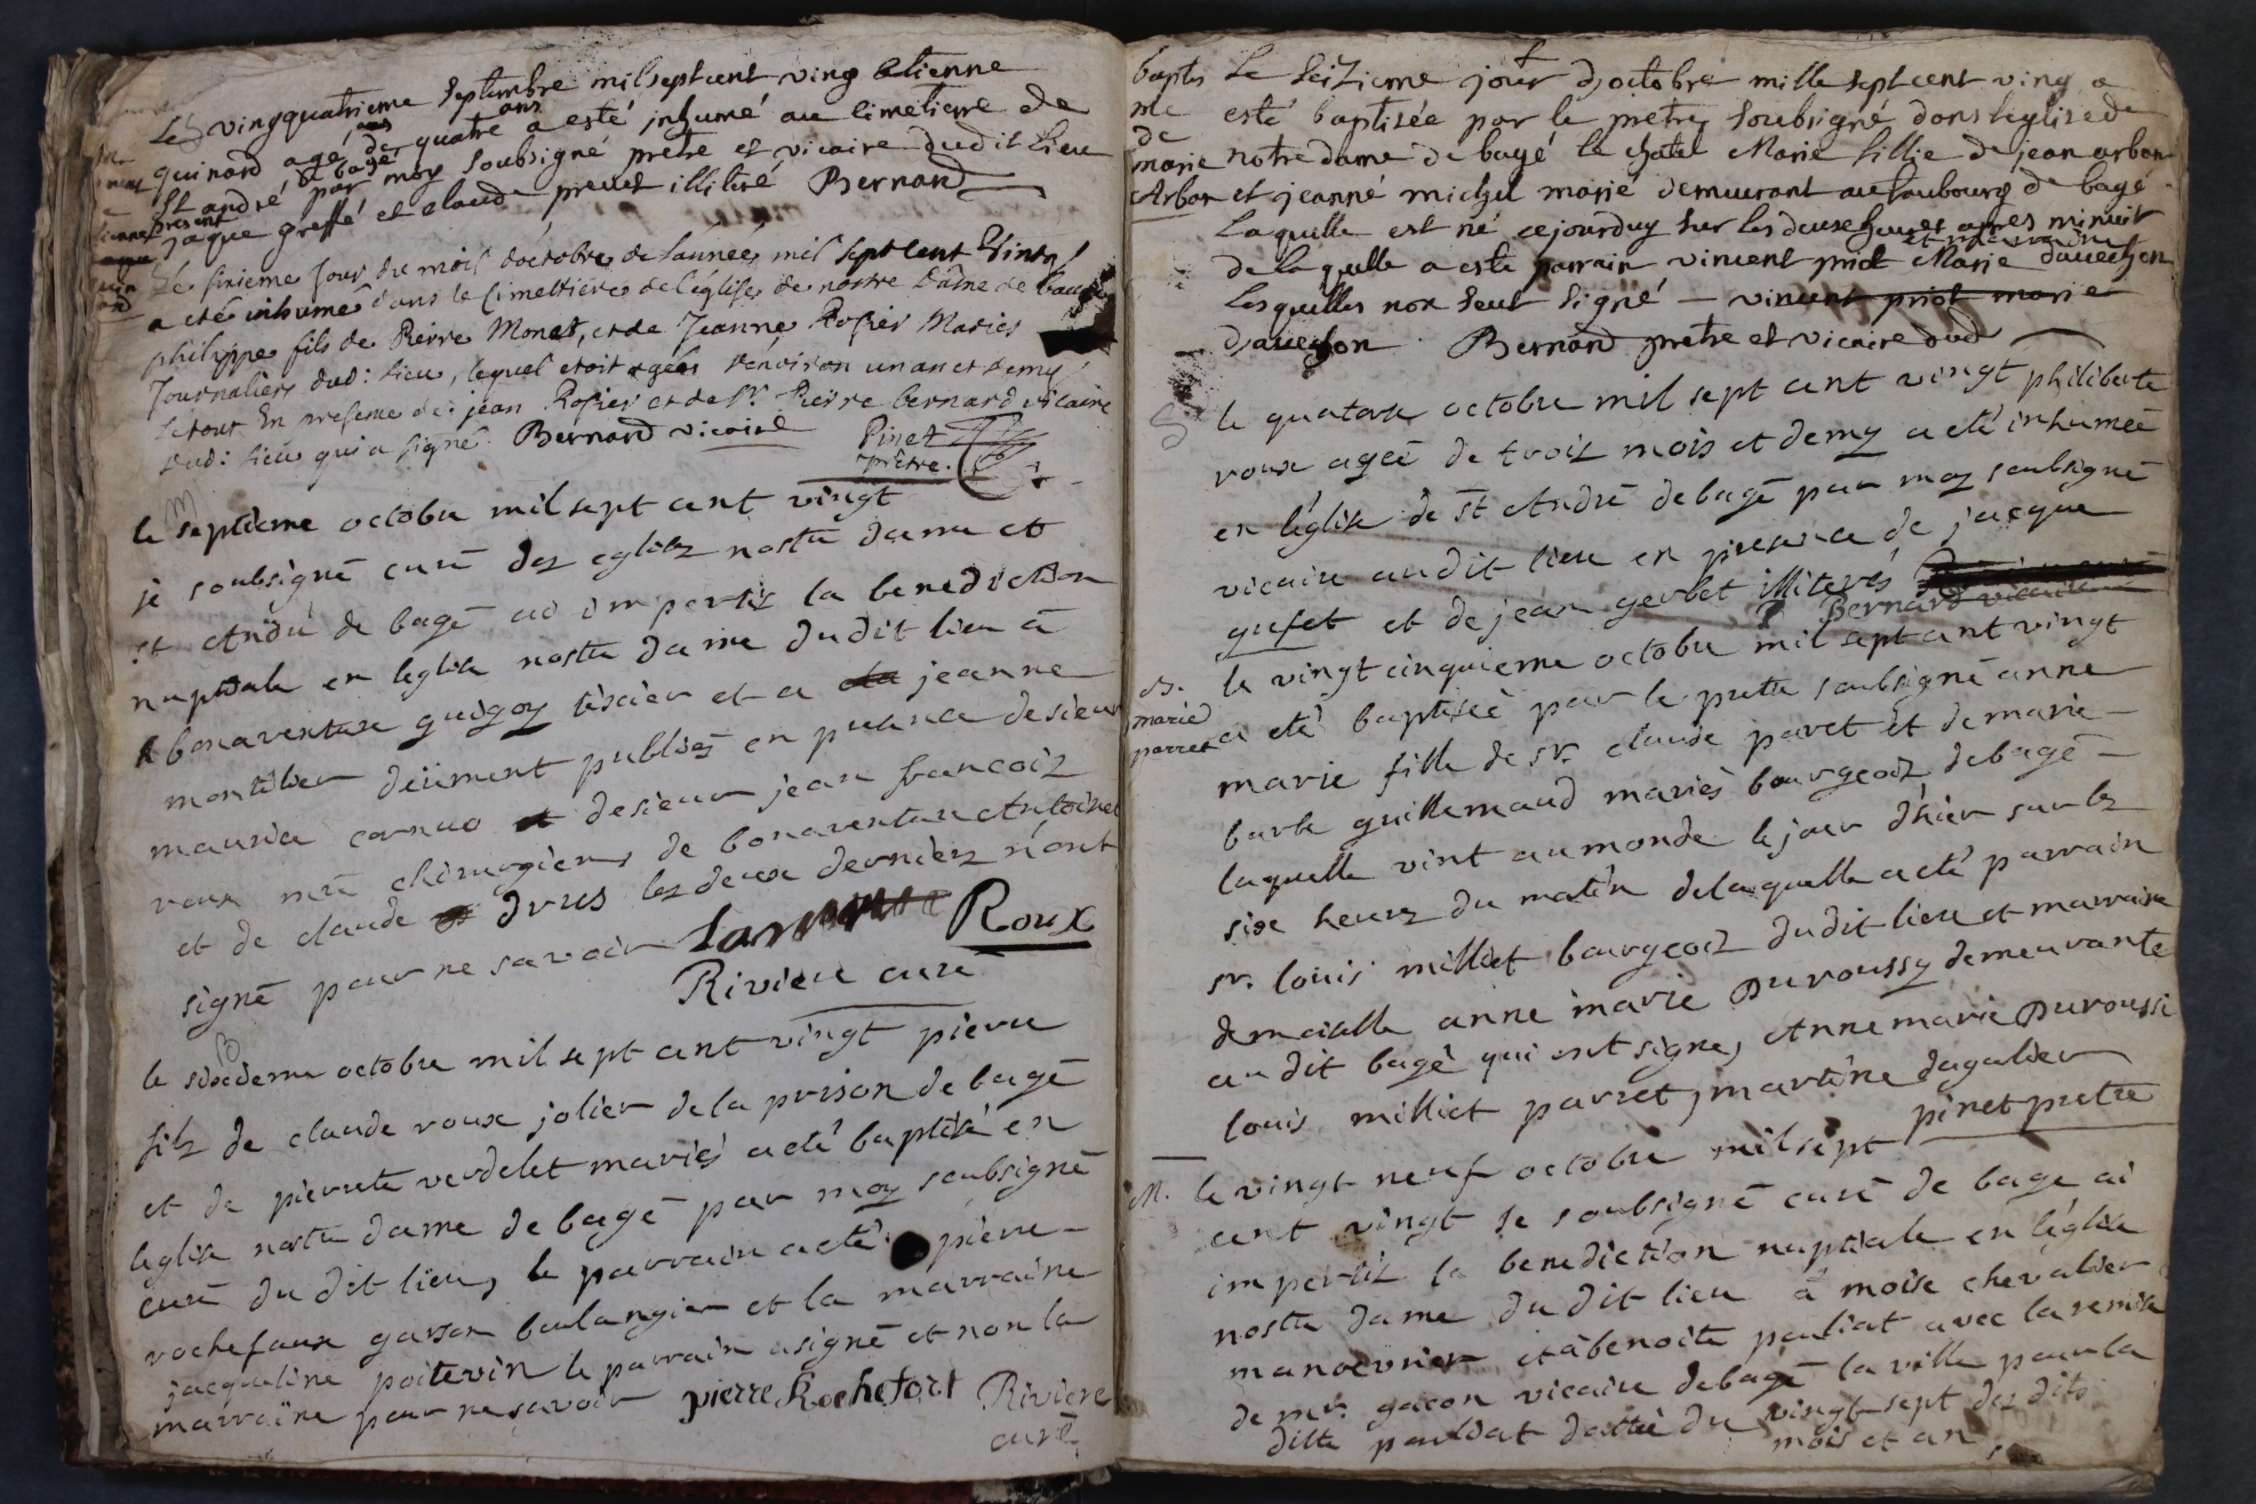 Le vingquatrieme septembre mil septcent ving etienne
quinard agé de quatre ans a esté inhumé au cimetierre de
St andré de bagé par moy soubsigné prêtre et vicaire dudit Lieu
present jaque greffé et claude preuet illiteré Bernard
Le sixieme jour du mois d'octobre de l'année mil sept cent vingt
a eté inhumé dans le Cimettiere de l'église de nostre Dame de baugé
philippe fils de Pierre Monet, et de Jeanne Rosier Mariés
Journaliers dud: lieu, lequel etoit agé d'environ un an et demy
le tout En presence de jean Rosier et de Sr. Pierre bernard vicaire
dud: lieu qui a signé. Bernard vicaire Pinet
prêtre.
M
le septieme octobre mil sept cent vingt
je soubsigné curé des eglises nostre dame et
st André de bagé ai impertis la benediction
nuptiale en l'eglise nostre dame dudit lieu à
bonaventure guigoy tissier et a jeanne
montillier deüement publiés en presence de sieur
maurice cornuo de sieur jean françois
roux mre chirurgiens de bonaventure Antoinet
et de claude drus les deux derniers n'ont
signé pour ne savoir Roux
Riviere curé
B
le sixieme octobre mil sept cent vingt pierre
fils de claude roux jolier de la prison de bagé
et de pierrete verdelet mariés a eté baptisé en
leglise nostre dame de bagé par moy soubsigné
curé du dit lieu, le parrain a eté pierre
rochefaux garson boulangier et la marraine
jacqueline poitevin le parrain a signé et non la
marraine pour ne savoir pierre Rochefort Riviere
curé
baptes
me
de
marie
Arbon
Le seizieme jour d'octobre mille septcent ving a
esté baptisée par le prêtre soubsigné dans leglise de
notre dame de bagé le chatel Marie fillie de jean arbon
et jeanne michel marié demeurant au faubourg de bagé
Laquelle est né cejourduy sur les deux heures apres minuit
de laquelle a este parrain vincent priot et marraine Marie dauechon
Lesquelles non seut signé — vincent priot marie
dauechon. Bernard prêtre et vicaire dud
le quatorze octobre mil sept cent vingt philiberte
roux ageé de trois mois et demy a eté inhumeé
en l'église de st André de bagé par moy soubsigné
vicaire audit lieu en presence de jacque
gufet et de jean gerbet illiterés
Bernard vicaire
B.
marie
parret
le vingt cinquieme octobre mil sept cent vingt
a eté baptiseé par le pretre soubsigné anne
marie fille de sr. claude paret et de marie
barbe guillemaud mariés bourgeois de bagé
laquelle vint au monde le jour d'hier sur les
six heures du matin de laquelle a eté parrain
sr. louis milliet bourgeois dudit lieu et marraine
demoiselle anne marie Duroussy demeurante
au dit bagé qui ont signé, Anne marie Duroussi
louis milliet parret, martine dagalier
pinet pretre
M.
le vingt neuf octobre mil sept
cent vingt je soubsigné curé de bage ai
impertis la benediction nuptiale en l'église
nostre dame du dit lieu a moise chevalier
manoevrier et à benoite pauliat avec la remise
de mr. gacon vicaire de bagé la ville pour la
ditte pauliat dattée du vingt sept des dits
mois et an,